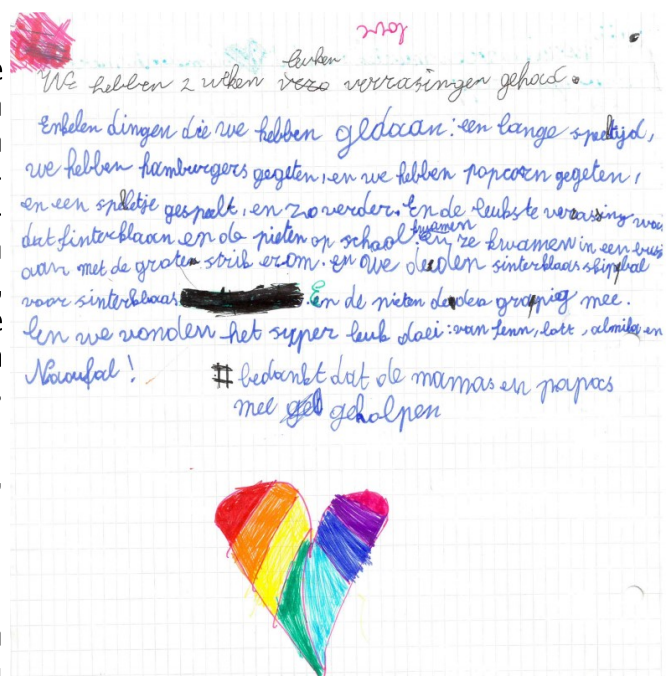 leuken
We hebben 2 weken verrasingen gehad.
Enkelen dingen die we hebben gedaan: een lange speeltijd,
we hebben hamburgers gegeten, en we hebben popcorn gegeten,
en een spelletje gespeelt, en zo verder. En de leukste verassing was
kwamen
dat sinterklaas en de pieten op school. En ze kwamen in een bus
aan met de groten strik erom. en we deeden sinterklaas
voor sinterklaas. En de pieten deeden grappig mee.
En we vonden het super leuk doei: van fenn, lott, almila en
Naoufal!
# bedankt dat de mamas en papas
mee geholpen